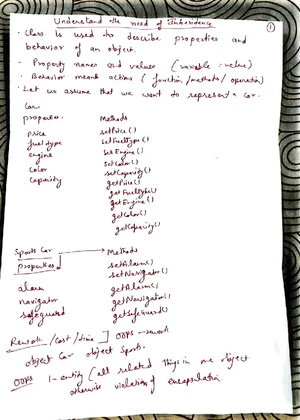 Understand the need of Inheritance
①
• Class is used to describe properties and
behavior of an object.
• Property names and values (variable = value)
• Behavior means actions (function/methods/operation)
• Let us assume that we want to represent a car.
Car
properties - Methods
price setPrice()
fuel type setFuelType()
engine setEngine()
color setColor()
capacity setCapacity()
getPrice()
getFuelType()
getEngine()
getColor()
getCapacity()
Sports Car Methods
properties setAlarm()
setNavigator()
alarm getAlarm()
navigator getNavigator()
safeguard getSafeGuard()
Rework /cost/time ] OOPS → rework
object Car object Sports.
OOPS 1-entity (all related things in one object
otherwise violation of encapsulation.